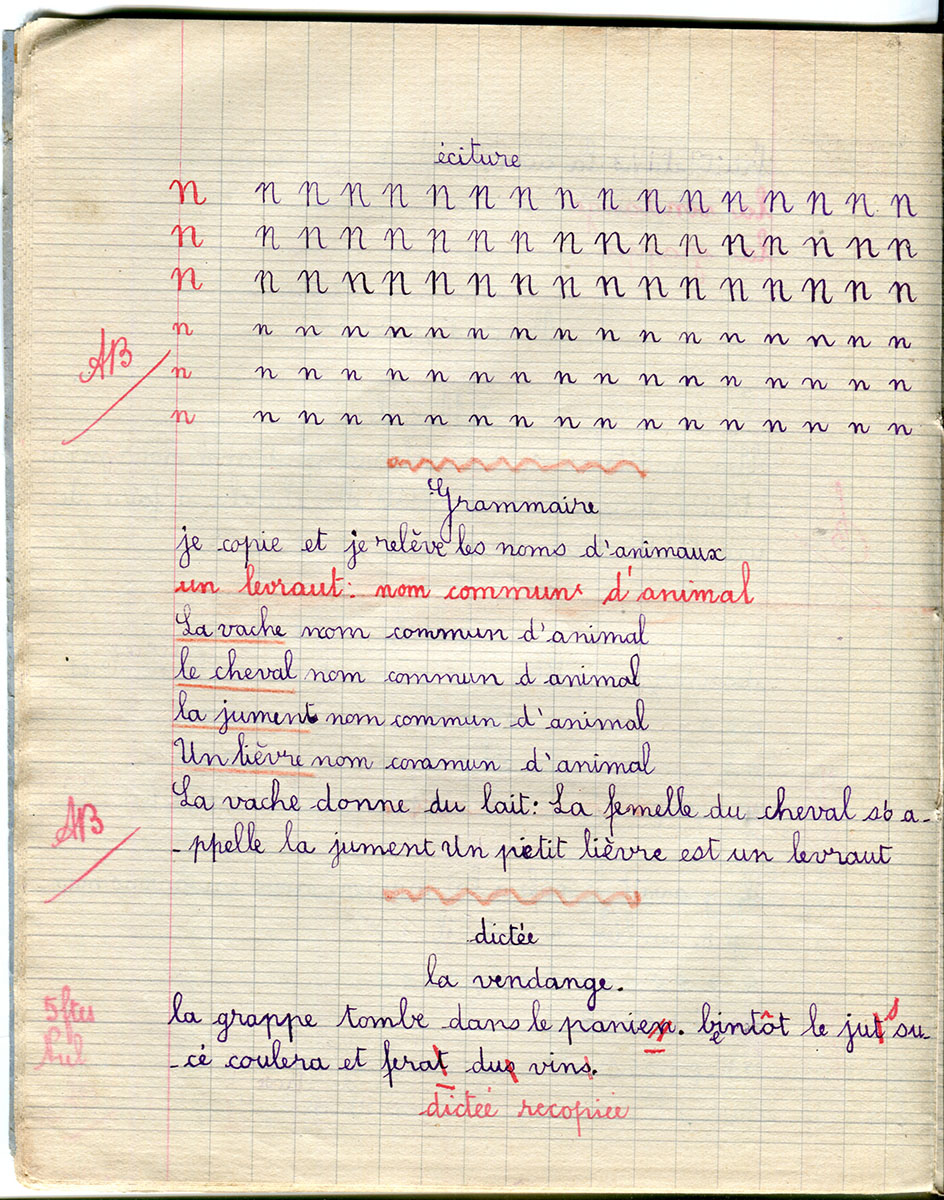 éciture
n n n n n n n n n n n n n n n n n
n n n n n n n n n n n n n n n n n
n n n n n n n n n n n n n n n n n
n n n n n n n n n n n n n n n n n
AB
n n n n n n n n n n n n n n n n n
n n n n n n n n n n n n n n n n n
Grammaire
je copie et je relève les noms d'animaux
un levraut: nom commun d'animal
La vache nom commun d'animal
le cheval nom commun d animal
la jument nom commun d'animal
Un lièvre nom commun d'animal
La vache donne du lait: La femelle du cheval s'a-
AB
-ppelle la jument Un petit lièvre est un levraut
dictée
la vendange.
5 ftes
la grappe tombe dans le panier. bientôt le jus su-
-cé coulera et fera du vin.
dictée recopiée